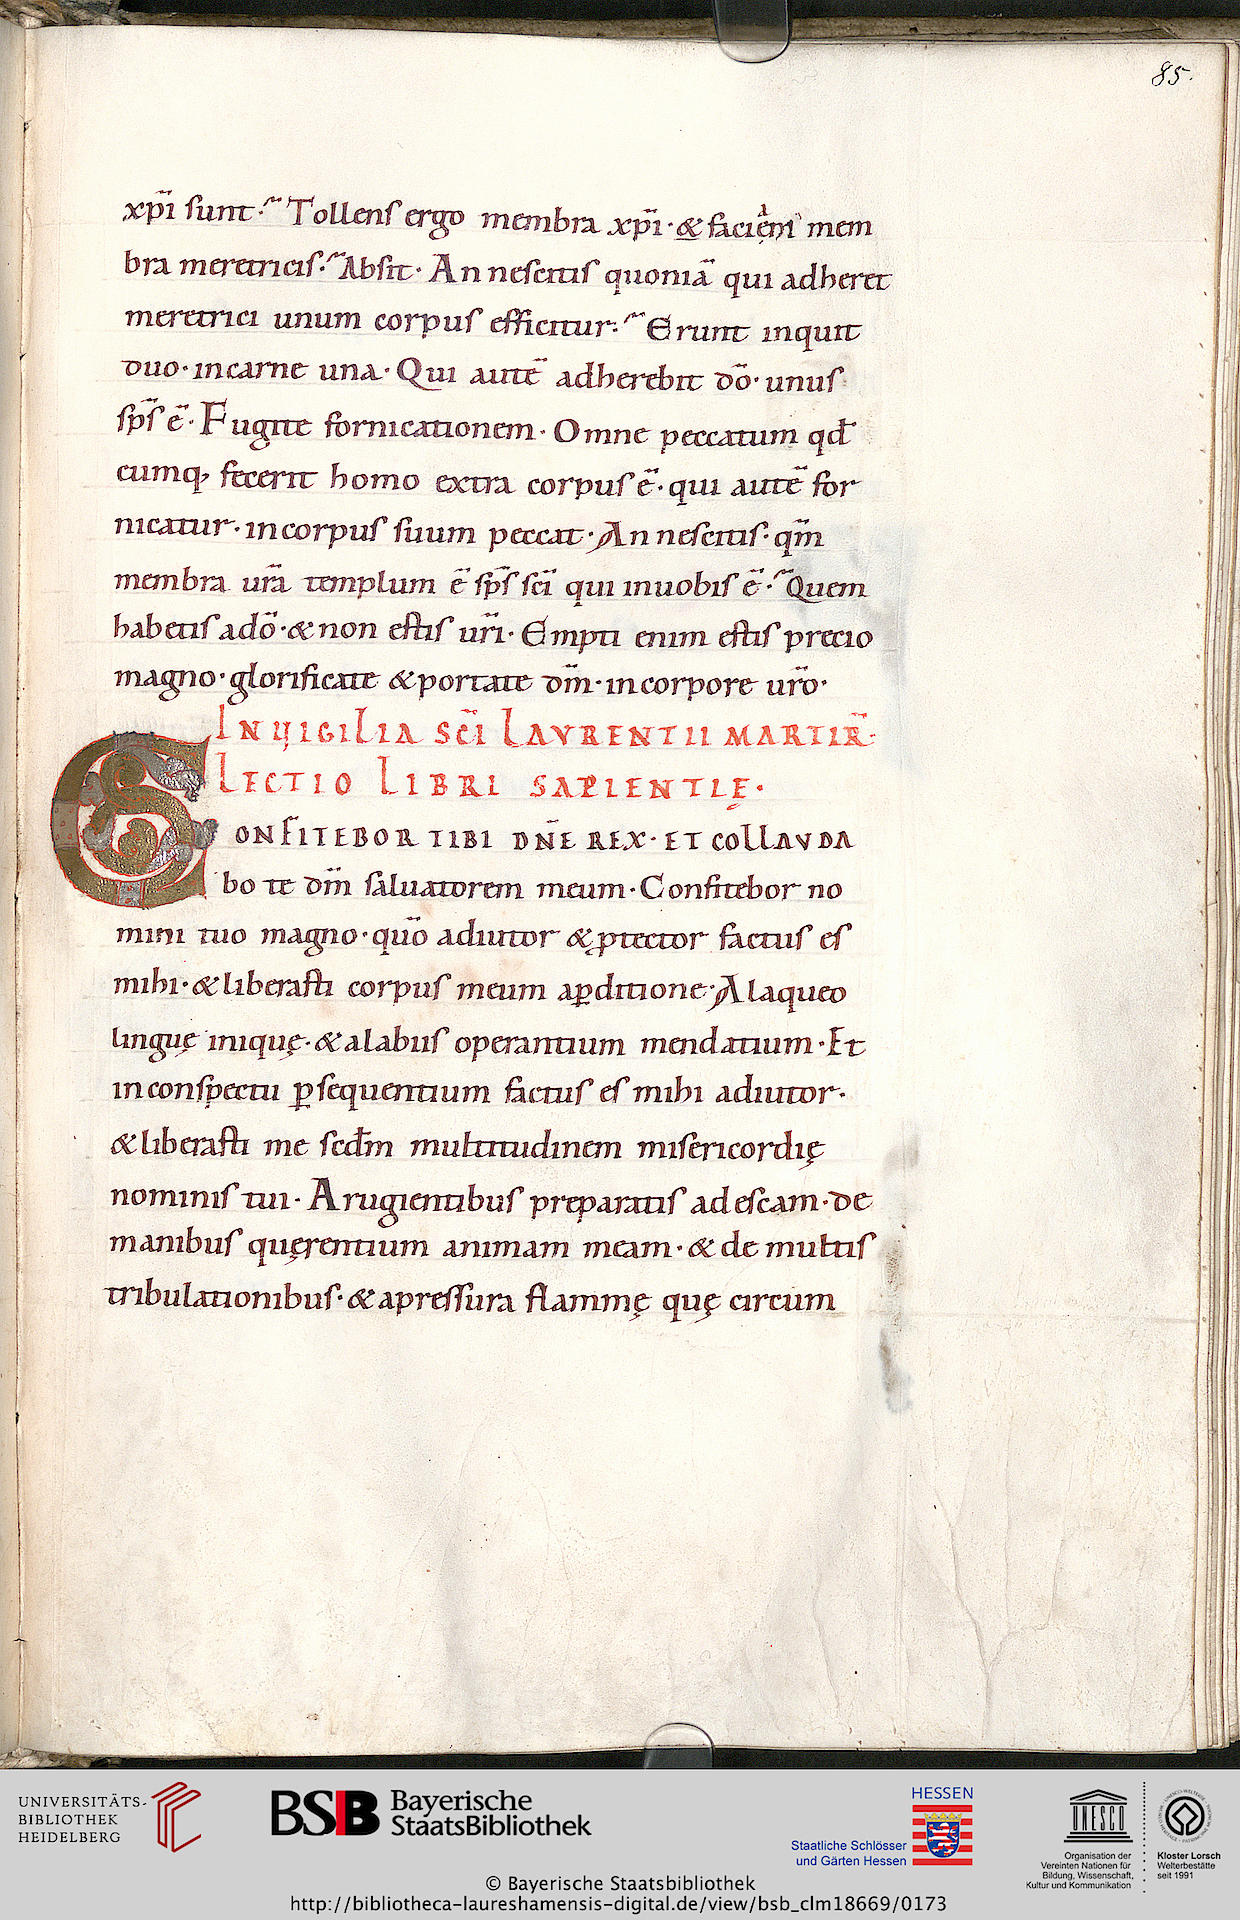 85.
xp̄i sunt. Tollens ergo membra xp̄i· & faciẹni mem
bra meretricis. Absit· An nescitis quoniā qui adheret
meretrici unum corpus efficitur. Erunt inquit
duo· incarne una· Qui autē adherebit dō· unus
sp̄s ē· Fugite fornicationem· Omne peccatum qđ
cumq, fecerit homo extra corpus ē· qui autē for
nicatur· incorpus suum peccat· An nescitis· qm̄
membra ur̄a templum ē sp̄s sc̄i qui inuobis ē· Quem
habetis adō· & non estis ur̄i· Empti enim estis precio
magno· glorificate & portate dm̄· incorpore ur̄o·
IN VIGILIA SC̄I LAVRENTII MARTIR̄·
LECTIO LIBRI SAPIENTIĘ·
CONFITEBOR TIBI DN̄E REX· ET COLLAVDA
bo te dm̄ saluatorem meum· Confitebor no
mini tuo magno· qūo adiutor & ꝓtector factus es
mihi· & liberasti corpus meum aꝑditione· A laqueo
linguę iniquę· & alabiis operantium mendatium· Et
inconspectu ꝑsequentium factus es mihi adiutor·
& liberasti me scđm multitudinem misericordię
nominis tui· A rugientibus preparatis adescam· de
manibus quęrentium animam meam· & de multis
tribulationibus· & apressura flammę quę circum
UNIVERSITÄTS-
BIBLIOTHEK
HEIDELBERG
BSB Bayerische
StaatsBibliothek
HESSEN
Staatliche Schlösser
und Gärten Hessen
UNESCO
Organisation der
Vereinten Nationen für
Bildung, Wissenschaft,
Kultur und Kommunikation
Kloster Lorsch
Welterbestätte
seit 1991
© Bayerische Staatsbibliothek
http://bibliotheca-laureshamensis-digital.de/view/bsb_clm18669/0173